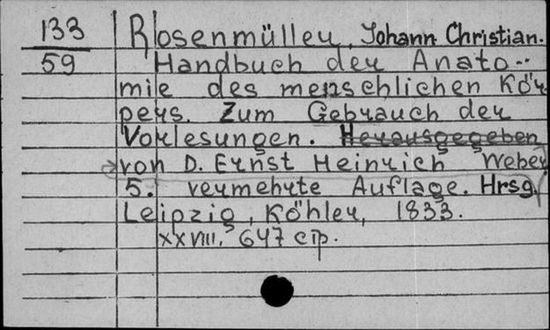 133 Rosenmüller, Johann Christian.
59 Handbuch der Anato-
mie des menschlichen Kör
pers. Zum Gebrauch der
Vorlesungen. Herausgegeben
von D. Ernst Heinrich Weber
5. vermehrte Auflage. Hrsg.
Leipzig, Köhler, 1833.
XXVIII, 647 стр.